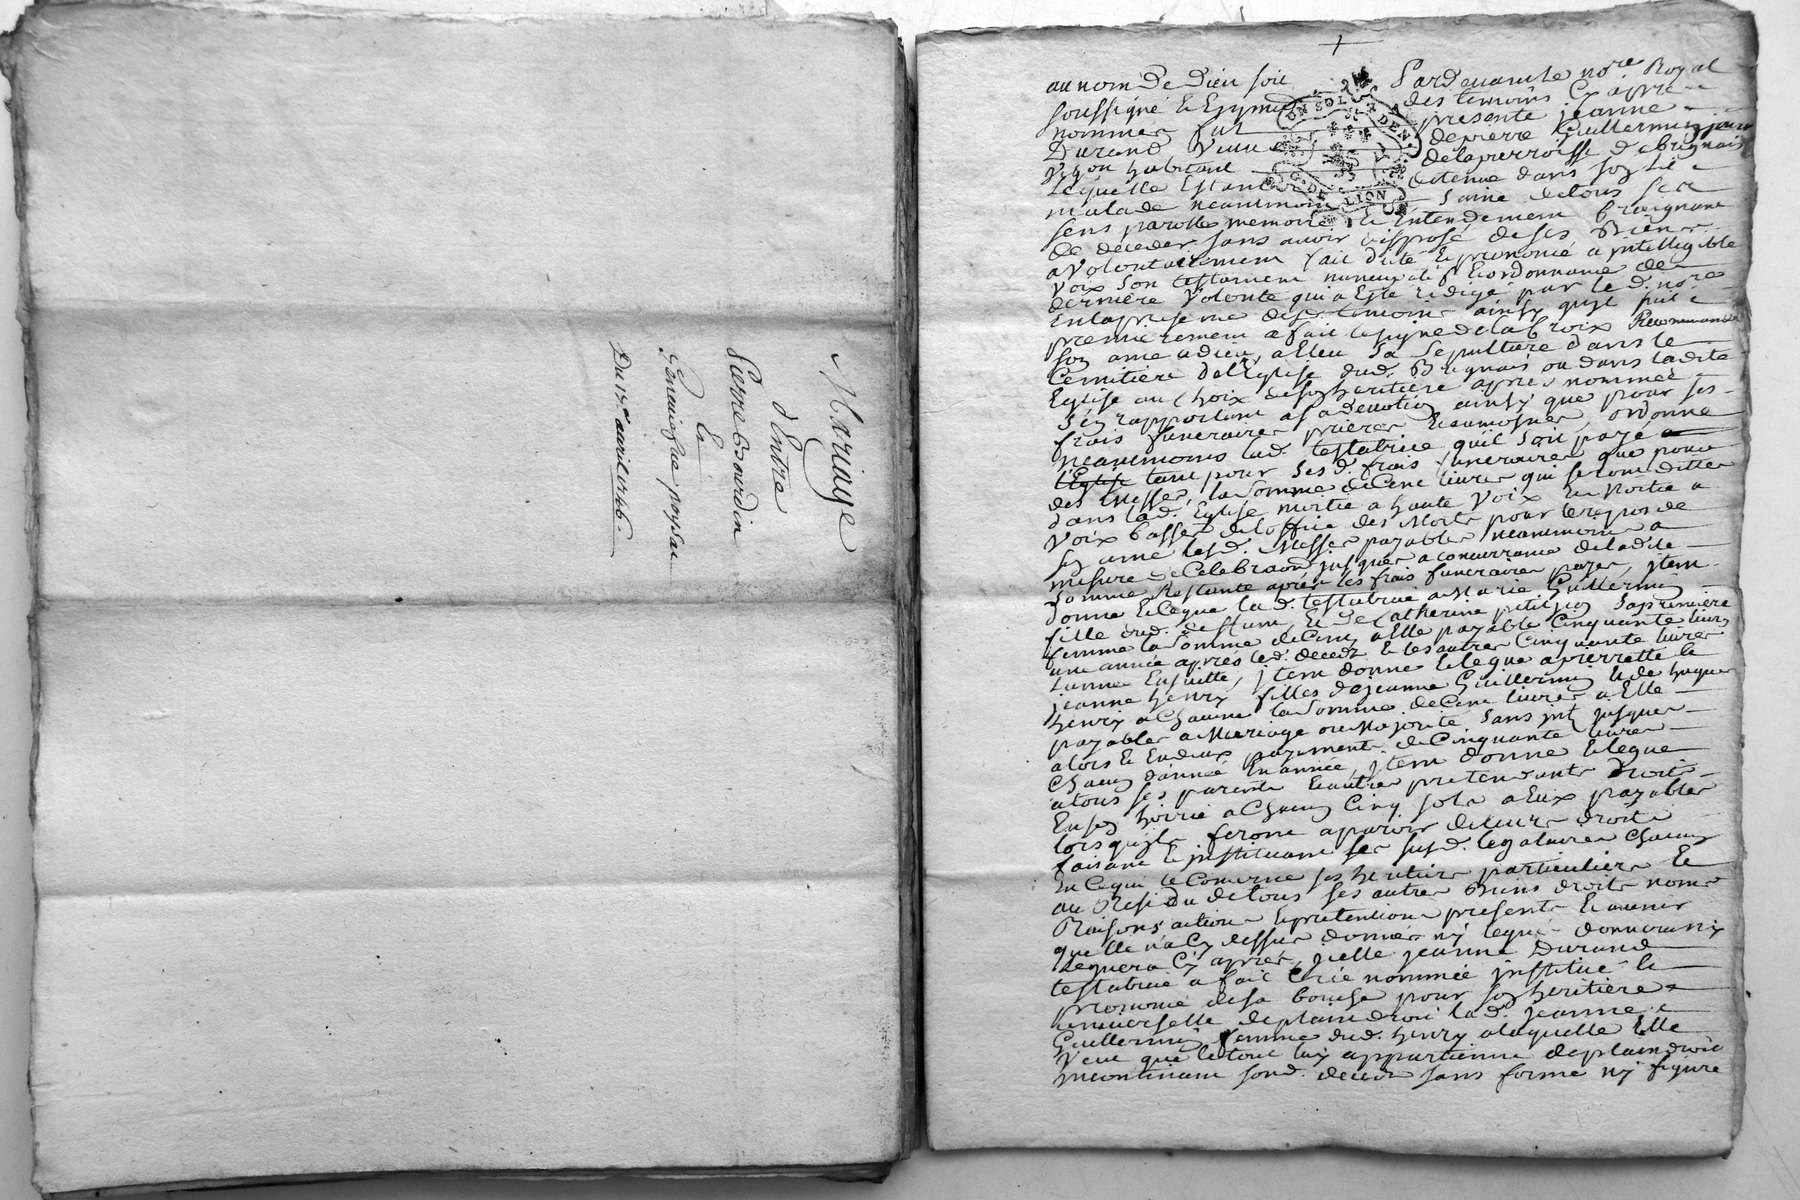 Mariage
d'Entre
Pierre Bourdin
Et
Du 17e avril 1716
au nom De Dieu soit Pardevant le no.re Royal
soussigné Et Esymes des temoins Cy apres
nommes fut presente jeanne
Durand Veuve de pierre Guillermin
habitant de la perroisse de brignais
Lequelle Estant detenue dans son Lit
malade neanmoins saine de tous ses
sens parolle memoire Et Entendement Craignant
De deceder sans avoir disposé de ses Biens
a Volontairement fait dicté Et prononcé a jntelligible
Voix son testament nuncupatif Et ordonnance de
derniere Volonte qui a Esté redigé par le d. no.re
En la presence desd. temoins ainsy quil suit
premierement a fait le signe de la Croix Recommandé
son ame a dieu, a Eleu sa sepulture dans le
Cemitiere de l'Eglise dud. Brignais ou dans ladite
Eglise au Choix de son heritiere apres nommée
s'en rapportant a sa devotion ainsy que pour ses
frais funeraires prieres Et aumosnes, ordonne
neanmoins lad. testatrice quil soit payé a
l'Eglise tant pour ses d. frais funeraires que pour
des Messes, la somme de Cent livres qui seront dittes
dans lad. Eglise moitie a haute Voix Et Moitie a
Voix basse de l'office des Morts pour le repos de
son ame lesd. Messes payables neanmoins a
mesure de Celebraon jusques a concurrance de ladite
somme Restante apres les frais funeraires payes, jtem
donne Et legue lad. testatrice a Marie Guillermin
fille dud. deffunt, Et de Catherine petitjean sa premiere
femme la somme de Cent a Elle payable Cinquante livres
une année apres led. deces Et les autres Cinquante livres
Lannee Ensuitte, jtem donne Et legue a pierrette Et
jeanne henry filles de jeanne Guillermin Et de hugue
henry a Chacune la somme de Cent livres a Elle
payables a Mariage ou Majorite sans jnt. jusques
alors Et En deux payements de Cinquante livres
Chacun dannée En année, jtem donne Et legue
a tous ses parents Et autres pretendants Droits
En son hoirie a Chacun Cinq sols a Eux payables
lors quils feront aparoir de leurs droits
faisant Et jnstituant ses susd. legataires Chacun
En Ce qui le Concerne ses heritiers particuliers Et
au Residu de tous ses autres Biens droits noms
Raisons actions Et pretentions presents Et avenir
quelle n'a Cy dessus donnés ny legué donnera ny
Leguera Cy apres, jcelle jeanne Durand
testatrice a fait Créé nommée jnstitué Et
prononcé de sa bouche pour son heritiere
universelle de plain droit lad. jeanne
Guillermin femme dud. henry a laquelle Elle
Veut que le tout luy appartienne de plain droit
jncontinant sond. deces sans forme ny figure